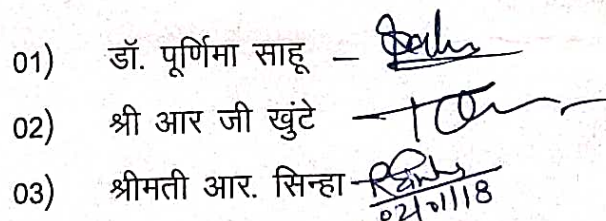 01) डॉ. पूर्णिमा साहू –
02) श्री आर जी खुंटे
03) श्रीमती आर. सिन्हा RSinha
02/01/18